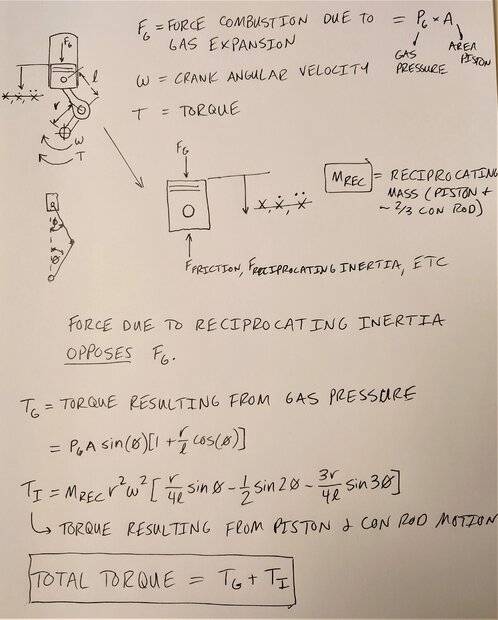 F_G = FORCE COMBUSTION DUE TO GAS EXPANSION = P_G × A
GAS PRESSURE
AREA PISTON
ω = CRANK ANGULAR VELOCITY
T = TORQUE
F_G
l
r
x, ẋ, ẍ
ω
T
F_G
x, ẋ, ẍ
M_REC = RECIPROCATING
MASS (PISTON +
~ 2/3 CON ROD)
F_FRICTION, F_RECIPROCATING INERTIA, ETC
FORCE DUE TO RECIPROCATING INERTIA
OPPOSES F_G.
T_G = TORQUE RESULTING FROM GAS PRESSURE
= P_G A sin(ø)[1 + r/l cos(ø)]
T_I = M_REC r²ω² [r/4l sin ø - 1/2 sin 2ø - 3r/4l sin 3ø]
↳ TORQUE RESULTING FROM PISTON & CON ROD MOTION
TOTAL TORQUE = T_G + T_I